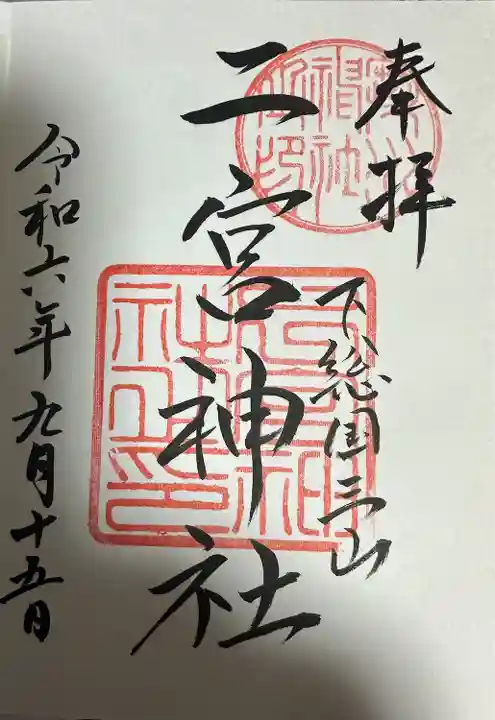 奉拝
下総国三山
二宮神社
令和六年九月十五日